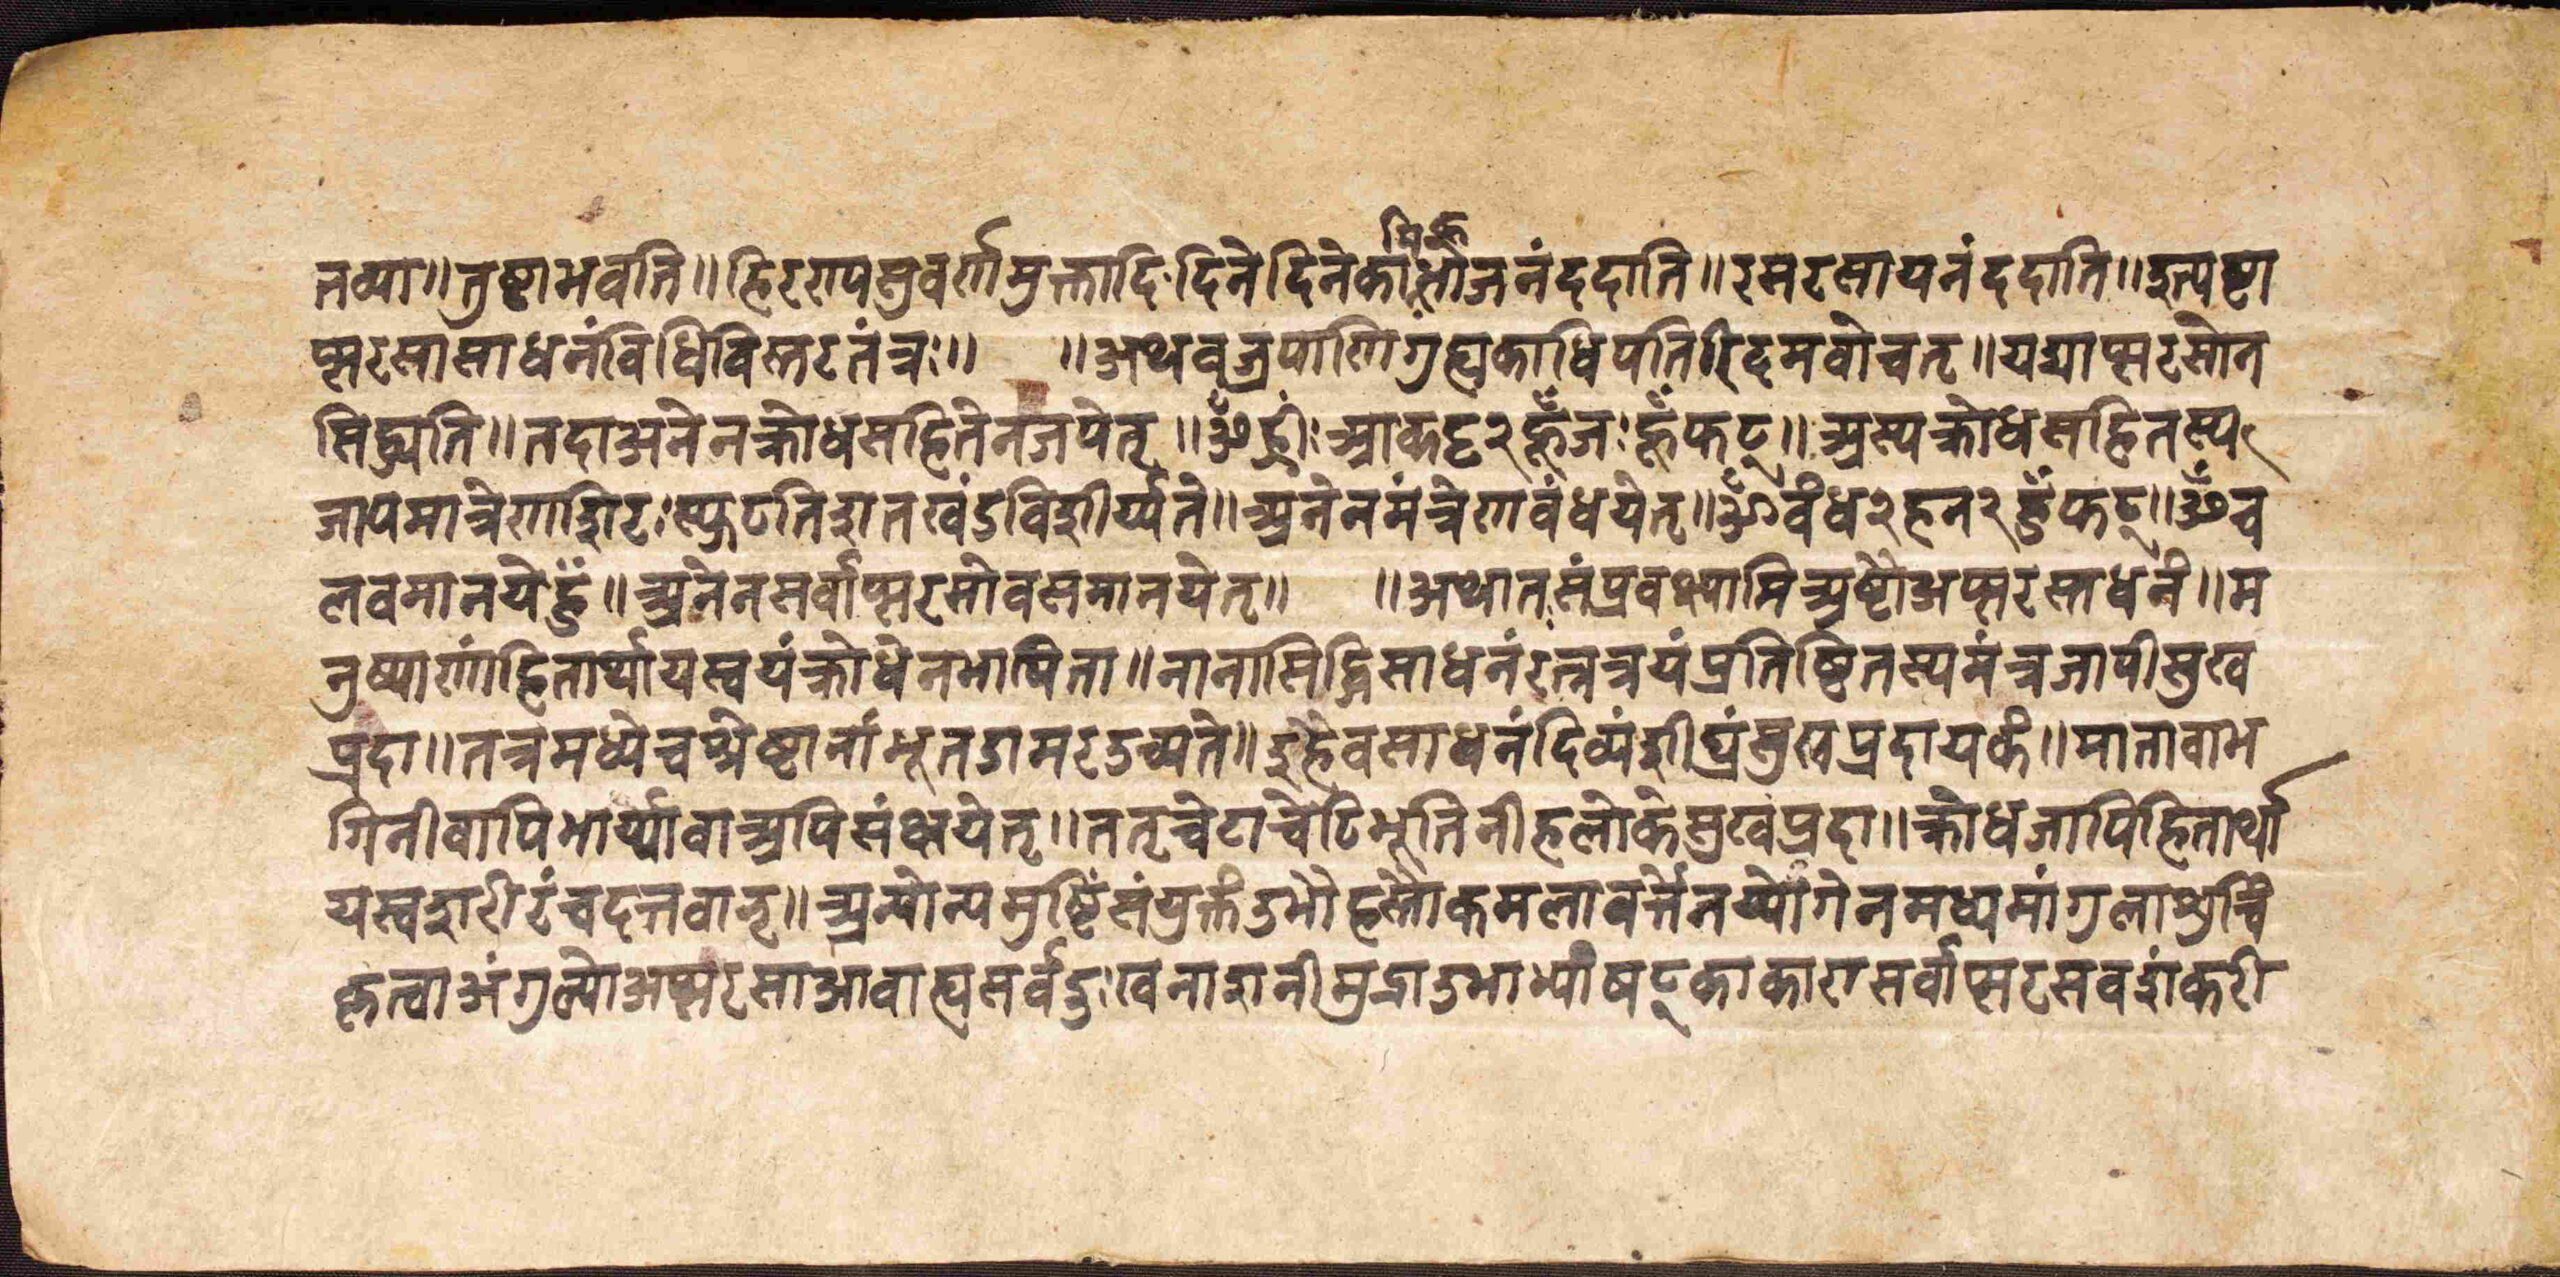 तव्या॥तुष्टाभवति॥हिरण्यसुवर्णमुक्तादिदिनेदिनेकामिकभोजनंददाति॥रसरसायनंददाति॥इत्यष्टा
प्सरसासाधनंविधिविस्तरतंत्रः॥ ॥अथवज्रपाणिंगुह्यकाधिपतिरिदमवोचत्॥यद्याप्सरसोन
सिद्ध्यति॥तदाअनेनक्रोधसहितेनजपेत्॥ॐह्रीः आकट्ट२हूँजःहूँफट्॥अस्यक्रोधसहितस्य
जापमात्रेणशिरःस्फुटतिशतखंडविशीर्य्यते॥अनेनमंत्रेणबंधयेत्॥ॐबंध२हन२हुँफट्॥ॐच
लवमानयेहुँ॥अनेनसर्वाप्सरसोवसमानयेत्॥ ॥अथातसंप्रवक्ष्यामिअष्टौअप्सरसाधनं॥म
नुष्याणांहितार्थायस्वयंक्रोधेनभाषिता॥नानासिद्धिसाधनंरत्नत्रयंप्रतिष्ठितस्यमंत्रजापीसुख
प्रदा॥तत्रमध्येचश्रेष्टानांभूतडामरउच्यते॥इहेवसाधनंदिव्यंशीघ्रंसुखप्रदायकं॥मातावाभ
गिनीवापिभार्य्यावाअपिसंक्षयेत्॥ततृचेटाचेटिभूतिनीहलोकेसुखप्रदा॥क्रोधजापिहितार्था
यस्वशरीरंचदत्तवान्॥अन्योन्यमुष्टिंसंयुक्तंउभौहस्तौकमलावर्त्तेनय्योगेनमध्यमांगुला
कृत्वाअंगुल्योअप्सरसाआवाह्यसर्वदुःखनाशनीमुद्राउभाभ्यांषट्काकारासर्वाप्सरसवशंकरी